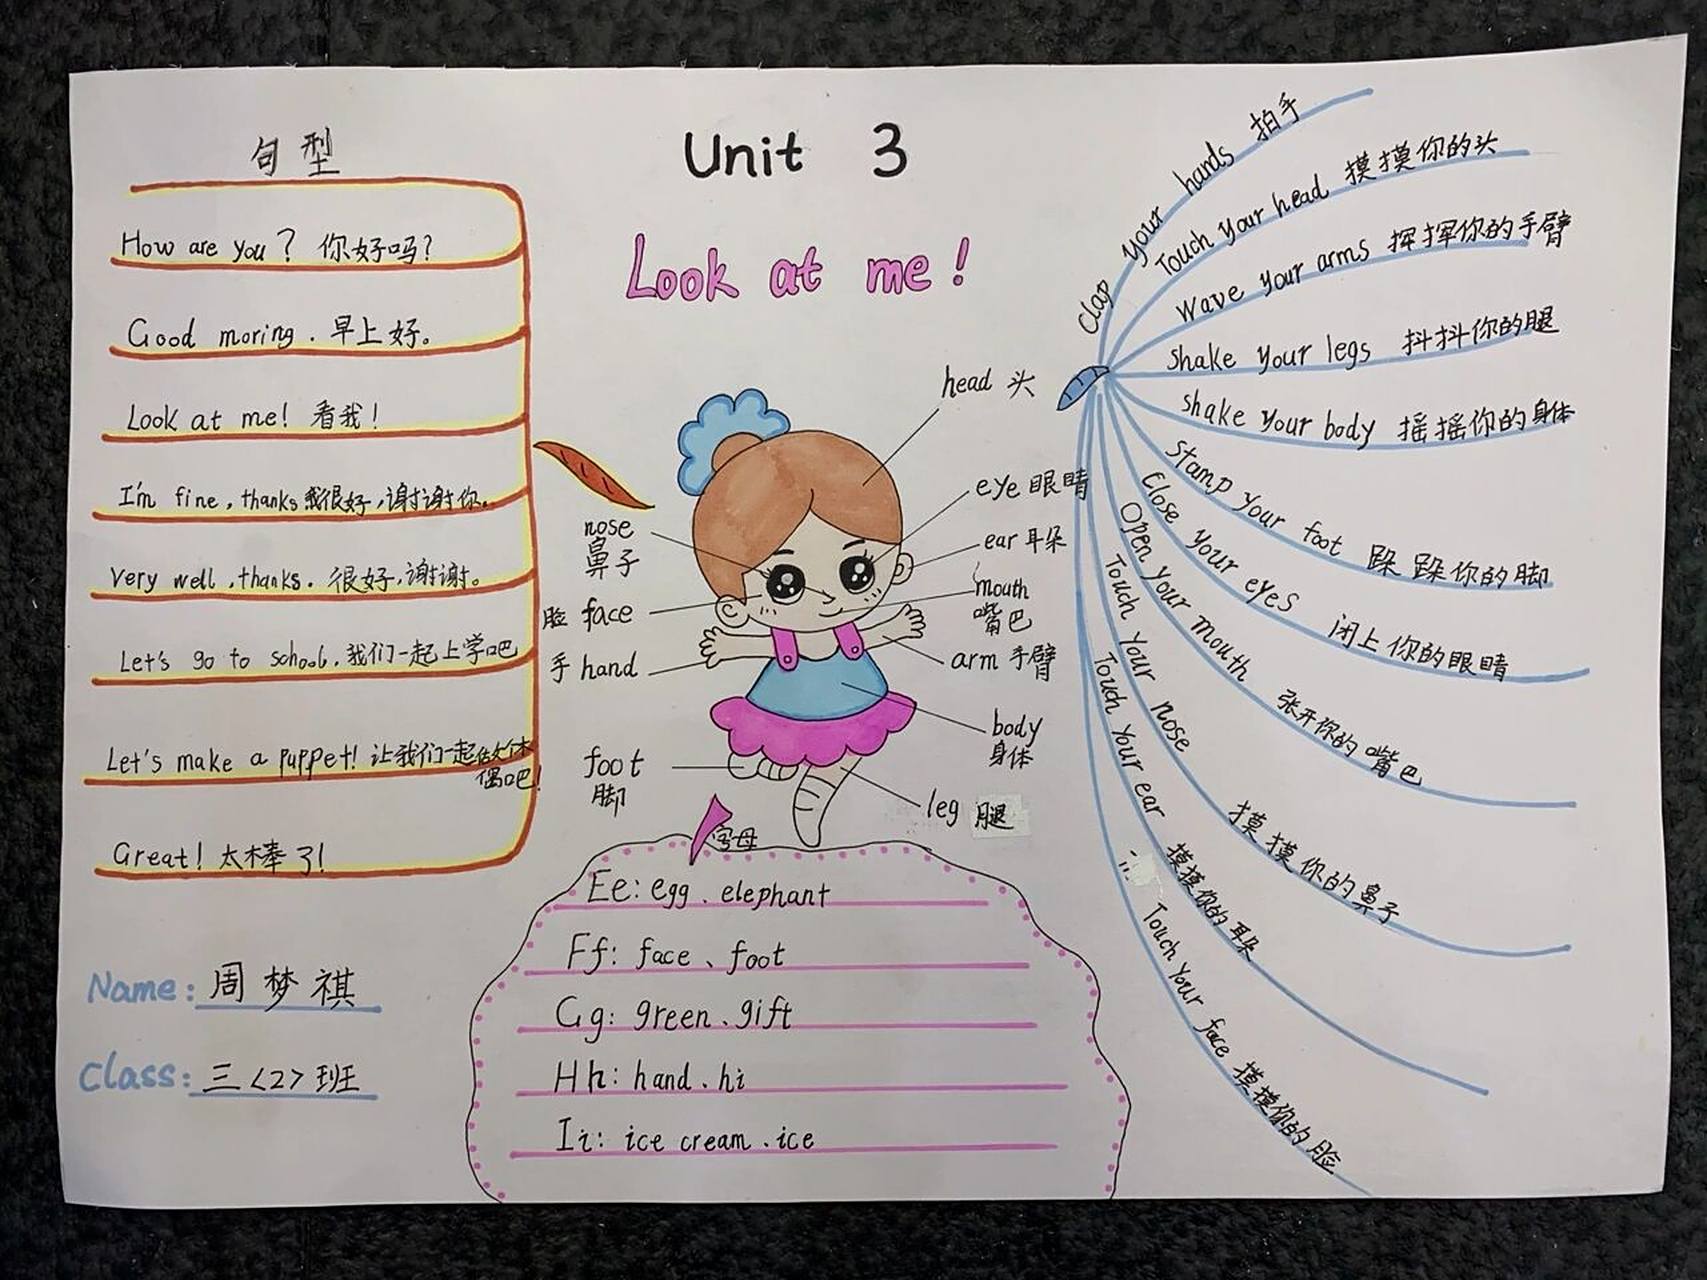 Unit 3
Look at me!
句型
How are you? 你好吗?
Good moring. 早上好。
Look at me! 看我!
I'm fine, thanks 我很好,谢谢你。
Very well, thanks. 很好,谢谢。
Let's go to school. 我们一起上学吧
Let's make a puppet! 让我们一起做个木
偶吧!
Great! 太棒了!
Name: 周梦祺
Class: 三<2>班
head 头
eye 眼睛
ear 耳朵
mouth
嘴巴
arm 手臂
body
身体
leg 腿
nose
鼻子
脸 face
手 hand
foot
脚
字母
Ee: egg、elephant
Ff: face、foot
Gg: green、gift
Hh: hand、hi
Ii: ice cream、ice
Clap your hands 拍手
Touch your head 摸摸你的头
Wave your arms 挥挥你的手臂
Shake your legs 抖抖你的腿
Shake your body 摇摇你的身体
Stamp your foot 跺跺你的脚
Close your eyes 闭上你的眼睛
Open your mouth 张开你的嘴巴
Touch your nose 摸摸你的鼻子
Touch your ear 摸摸你的耳朵
Touch your face 摸摸你的脸